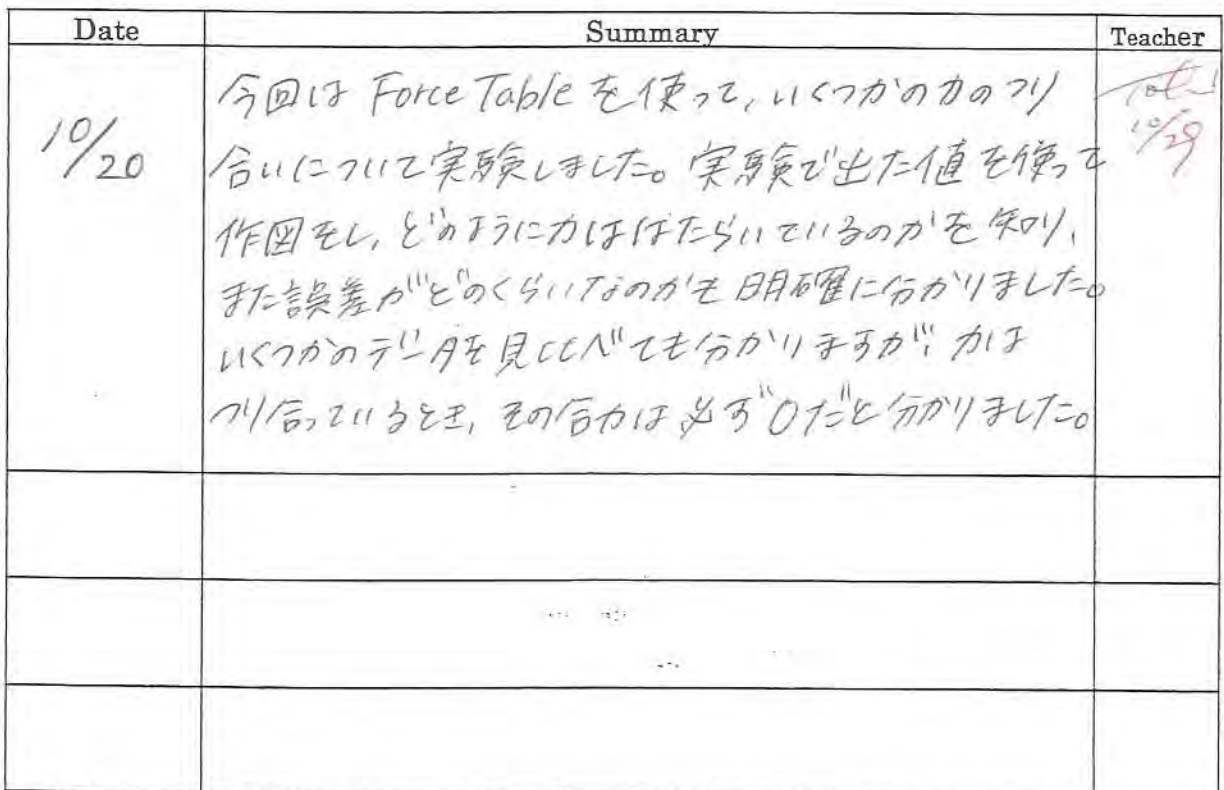 Date Summary Teacher
10/20
今回は Force Table を使って, いくつかの力のつり
合いについて実験しました。実験で出た値を使って
作図をし, どのように力ははたらいているのかを知り,
また誤差がどのくらいなのかも明確に分かりました。
いくつかのデータを見比べても分かりますが, 力は
つり合っているとき, その合力は必ず0だと分かりました。
10/29